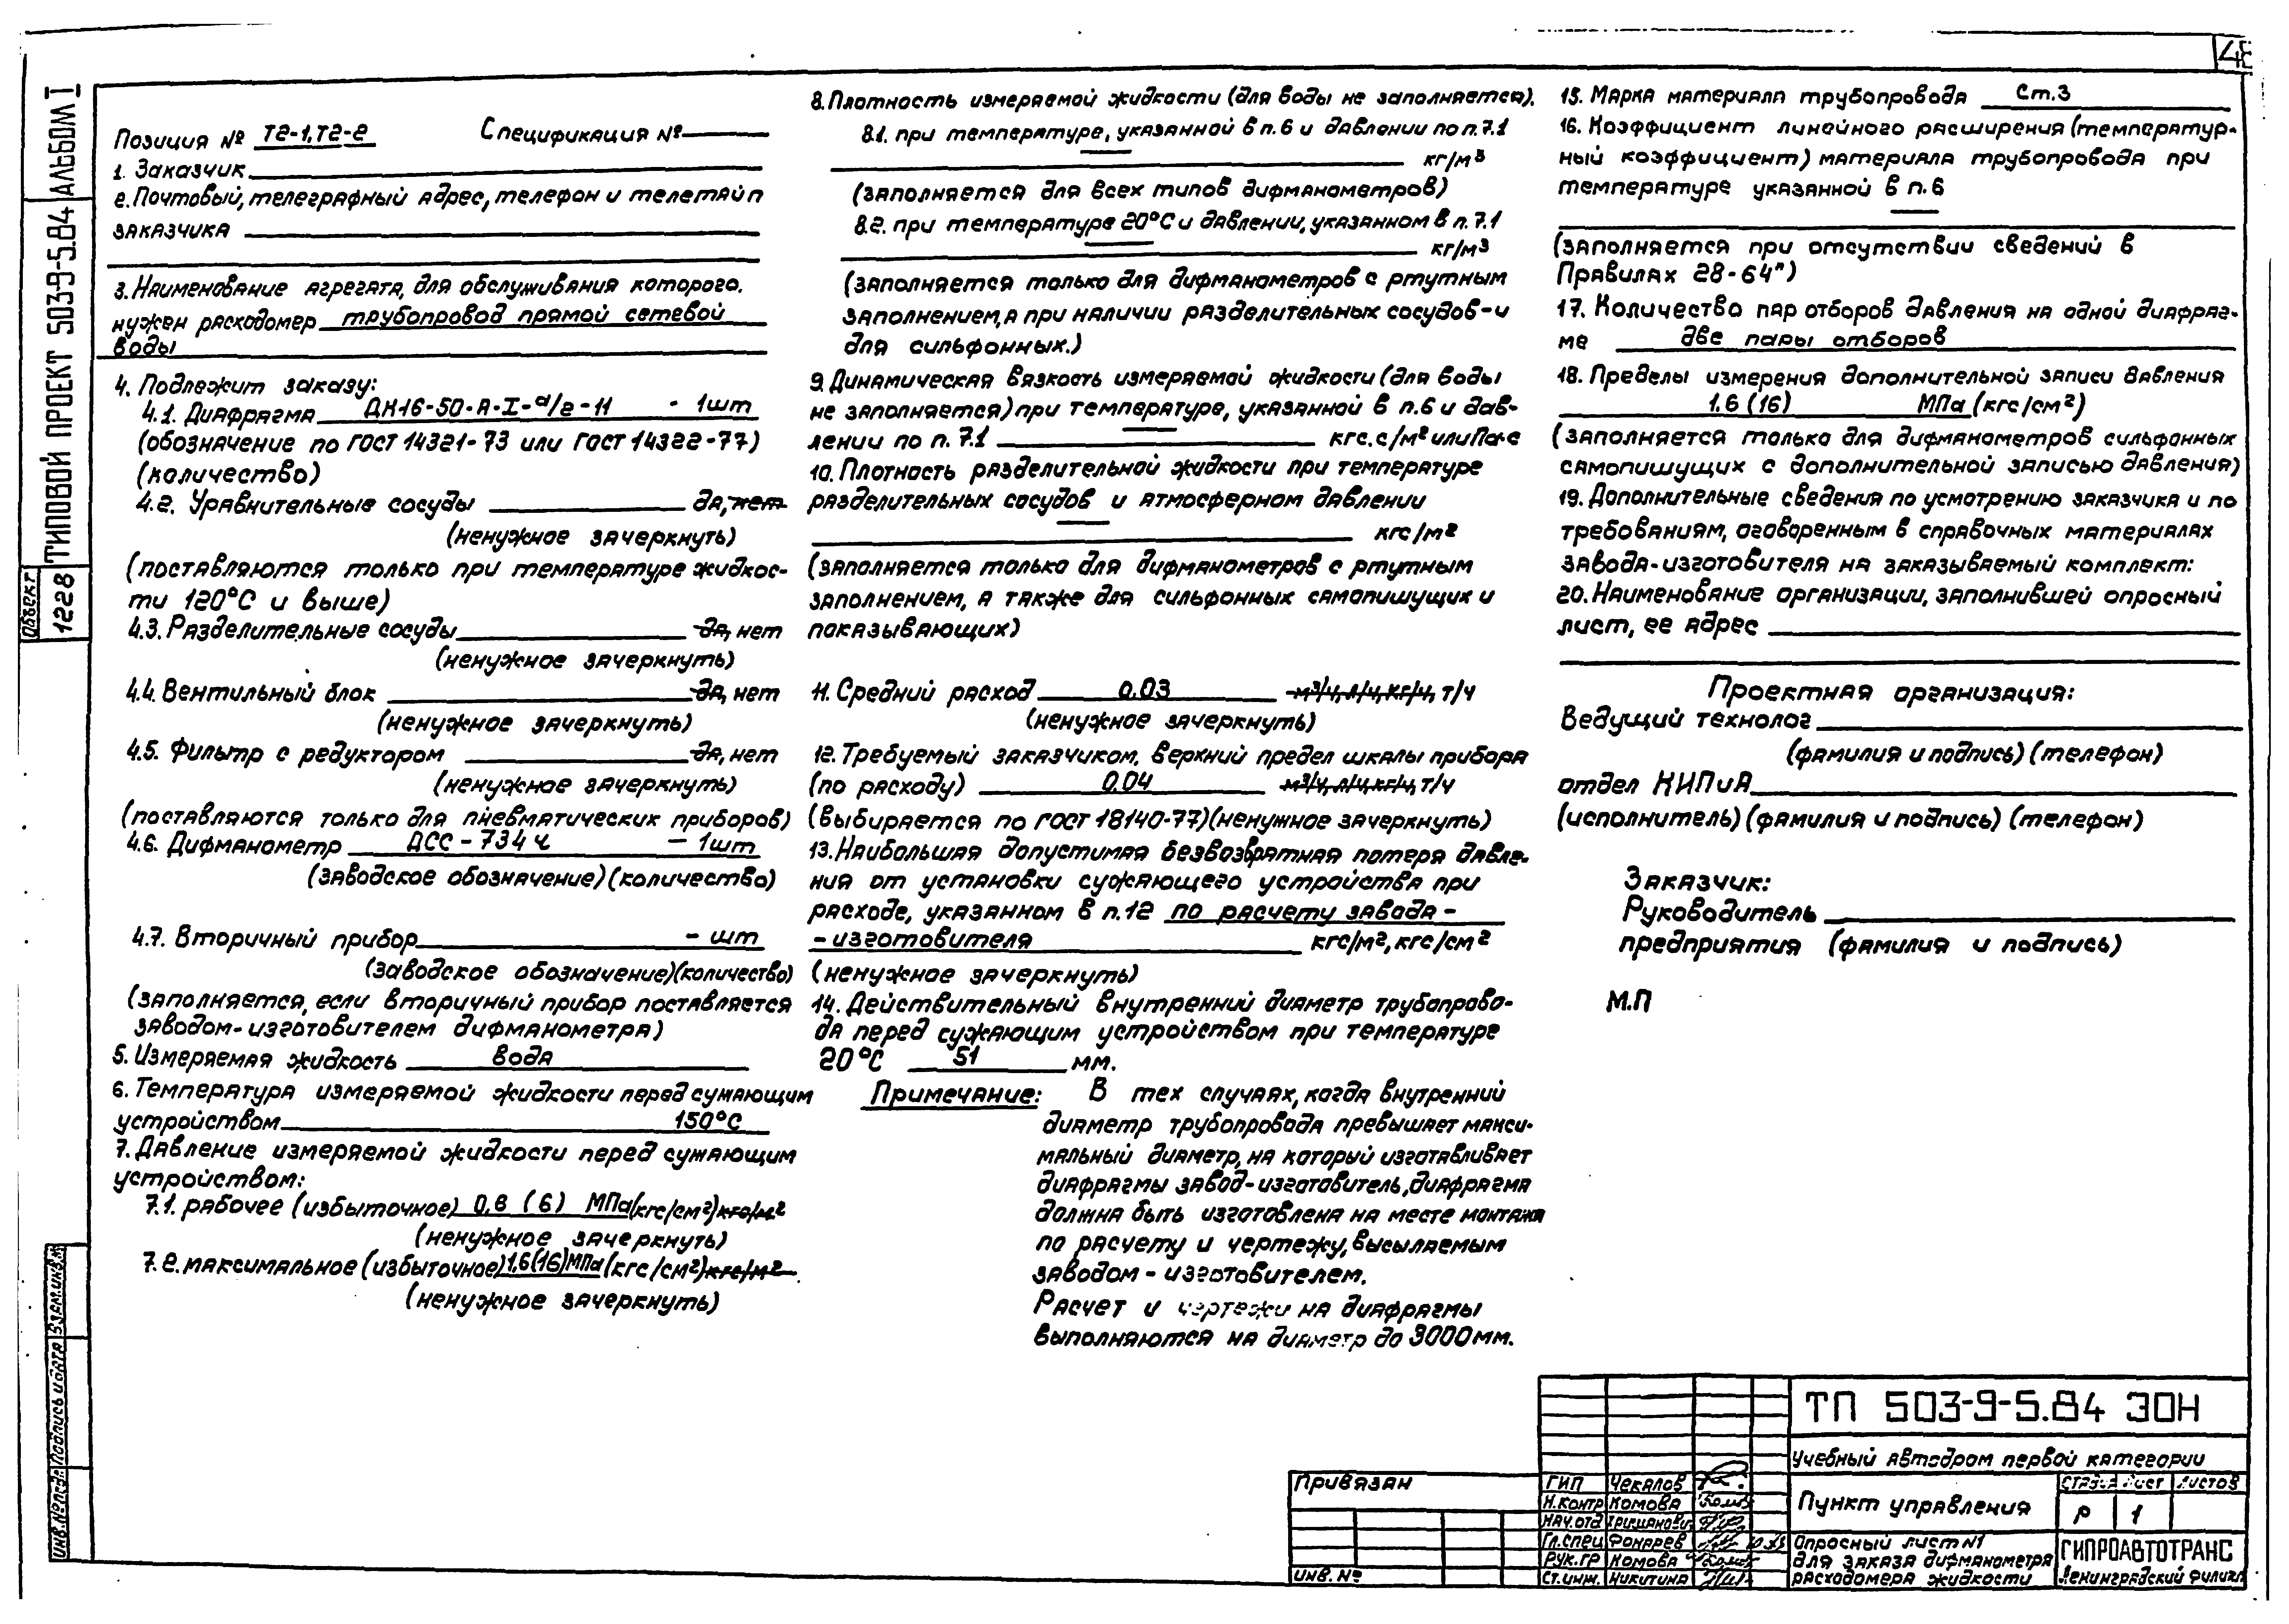 48
АЛЬБОМ I
ТИПОВОЙ ПРОЕКТ 503-9-5.84
ОБЪЕКТ
1228
Позиция № Т2-1, Т2-2 Спецификация №
1. Заказчик
2. Почтовый, телеграфный адрес, телефон и телетайп
заказчика
3. Наименование агрегата, для обслуживания которого.
нужен расходомер трубопровод прямой сетевой
воды
4. Подлежит заказу:
4.1. Диафрагма ДК16-50-А-I-а/г-11 - 1шт
(обозначение по ГОСТ 14321-73 или ГОСТ 14322-77)
(количество)
4.2. Уравнительные сосуды да, нет
(ненужное зачеркнуть)
(поставляются только при температуре жидкос-
ти 120°С и выше)
4.3. Разделительные сосуды да, нет
(ненужное зачеркнуть)
4.4. Вентильный блок да, нет
(ненужное зачеркнуть)
4.5. Фильтр с редуктором да, нет
(ненужное зачеркнуть)
(поставляются только для пневматических приборов)
4.6. Дифманометр ДСС-734Ч - 1шт
(заводское обозначение) (количество)
4.7. Вторичный прибор - шт
(заводское обозначение)(количество)
(заполняется, если вторичный прибор поставляется
заводом-изготовителем дифманометра)
5. Измеряемая жидкость вода
6. Температура измеряемой жидкости перед сужающим
устройством 150°С
7. Давление измеряемой жидкости перед сужающим
устройством:
7.1. рабочее (избыточное) 0,6 (6) МПа (кгс/см²) кгс/м²
(ненужное зачеркнуть)
7.2. максимальное (избыточное) 1,6(16)МПа (кгс/см²) кгс/м²
(ненужное зачеркнуть)
8. Плотность измеряемой жидкости (для воды не заполняется).
8.1. при температуре, указанной в п.6 и давлении по п.7.1
кг/м³
(заполняется для всех типов дифманометров)
8.2. при температуре 20°С и давлении, указанном в п.7.1
кг/м³
(заполняется только для дифманометров с ртутным
заполнением, а при наличии разделительных сосудов-и
для сильфонных.)
9. Динамическая вязкость измеряемой жидкости (для воды
не заполняется) при температуре, указанной в п.6 и дав-
лении по п.7.1 кгс.с/м² или Па·с
10. Плотность разделительной жидкости при температуре
разделительных сосудов и атмосферном давлении
кгс/м²
(заполняется только для дифманометров с ртутным
заполнением, а также для сильфонных самопишущих и
показывающих)
11. Средний расход 0.03 м³/ч, л/ч, кг/ч, т/ч
(ненужное зачеркнуть)
12. Требуемый заказчиком, верхний предел шкалы прибора
(по расходу) 0,04 м³/ч, л/ч, кг/ч, т/ч
(выбирается по ГОСТ 18140-77) (ненужное зачеркнуть)
13. Наибольшая допустимая безвозвратная потеря давле-
ния от установки сужающего устройства при
расходе, указанном в п.12 по расчету завода-
-изготовителя кгс/м², кгс/см²
(ненужное зачеркнуть)
14. Действительный внутренний диаметр трубопрово-
да перед сужающим устройством при температуре
20°С 51 мм.
Примечание: В тех случаях, когда внутренний
диаметр трубопровода превышает макси-
мальный диаметр, на который изготавливает
диафрагмы завод-изготовитель, диафрагма
должна быть изготовлена на месте монтажа
по расчету и чертежу, высылаемым
заводом-изготовителем.
Расчет и чертежи на диафрагмы
выполняются на диаметр до 3000мм.
15. Марка материала трубопровода Ст.3
16. Коэффициент линейного расширения (температур-
ный коэффициент) материала трубопровода при
температуре указанной в п.6
(заполняется при отсутствии сведений в
Правилах 28-64")
17. Количество пар отборов давления на одной диафраг-
ме две пары отборов
18. Пределы измерения дополнительной записи давления
1.6 (16) МПа (кгс/см²)
(заполняется только для дифманометров сильфонных
самопишущих с дополнительной записью давления)
19. Дополнительные сведения по усмотрению заказчика и по
требованиям, оговоренным в справочных материалах
завода-изготовителя на заказываемый комплект:
20. Наименование организации, заполнившей опросный
лист, ее адрес
Проектная организация:
Ведущий технолог
(фамилия и подпись) (телефон)
отдел КИПиА
(исполнитель) (фамилия и подпись) (телефон)
Заказчик:
Руководитель
предприятия (фамилия и подпись)
М.П
ИНВ.№ подл. Подпись и дата Взам.инв.№
Привязан
ИНВ. №
ГИП Чекалов
Н.контр Комова
Нач.отд
Гл.спец Фонарев
Рук.гр Комова
Ст.инж. Никитина
ТП 503-9-5.84 ЭОН
Учебный автодром первой категории
Пункт управления
Стадия Лист Листов
Р 1
Опросный лист №1
для заказа дифманометра
расходомера жидкости
ГИПРОАВТОТРАНС
Ленинградский филиал